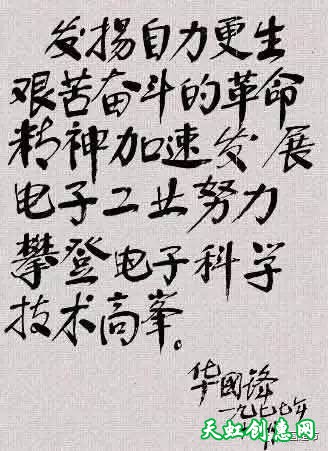 发揚自力更生
艰苦奋斗的革命
精神加速发展
电子工业努力
攀登电子科学
技术高峯。
华國锋
一九七七年
天虹创意网